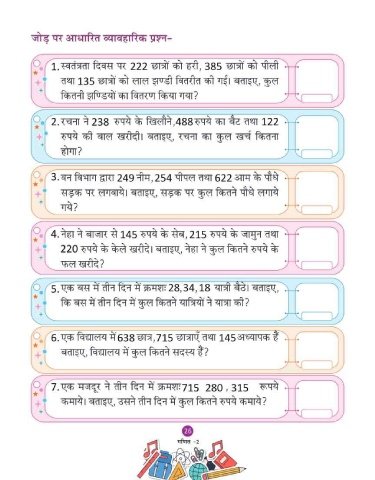 जोड़ पर आधारित व्यावहारिक प्रश्न-
1. स्वतंत्रता दिवस पर 222 छात्रों को हरी, 385 छात्रों को पीली
तथा 135 छात्रों को लाल झण्डी वितरीत की गई। बताइए, कुल
कितनी झण्डियों का वितरण किया गया?
2. रचना ने 238 रुपये के खिलौने,488रुपये का बैट तथा 122
रुपये की बाल खरीदी। बताइए, रचना का कुल खर्च कितना
होगा?
3. वन विभाग द्वारा 249 नीम,254 पीपल तथा 622 आम के पौधे
सड़क पर लगवाये। बताइए, सड़क पर कुल कितने पौधे लगाये
गये?
4. नेहा ने बाजार से 145 रुपये के सेब,215 रुपये के जामुन तथा
220 रुपये के केले खरीदे। बताइए, नेहा ने कुल कितने रुपये के
फल खरीदे?
5. एक बस में तीन दिन में क्रमशः 28,34,18 यात्री बैठे। बताइए,
कि बस में तीन दिन में कुल कितने यात्रियों ने यात्रा की?
6. एक विद्यालय में638 छात्र,715 छात्राएँ तथा 145अध्यापक हैं
बताइए, विद्यालय में कुल कितने सदस्य हैं?
7. एक मजदूर ने तीन दिन में क्रमशः715 280 , 315 रूपये
कमाये। बताइए, उसने तीन दिन में कुल कितने रुपये कमाये?
26
गणित -2